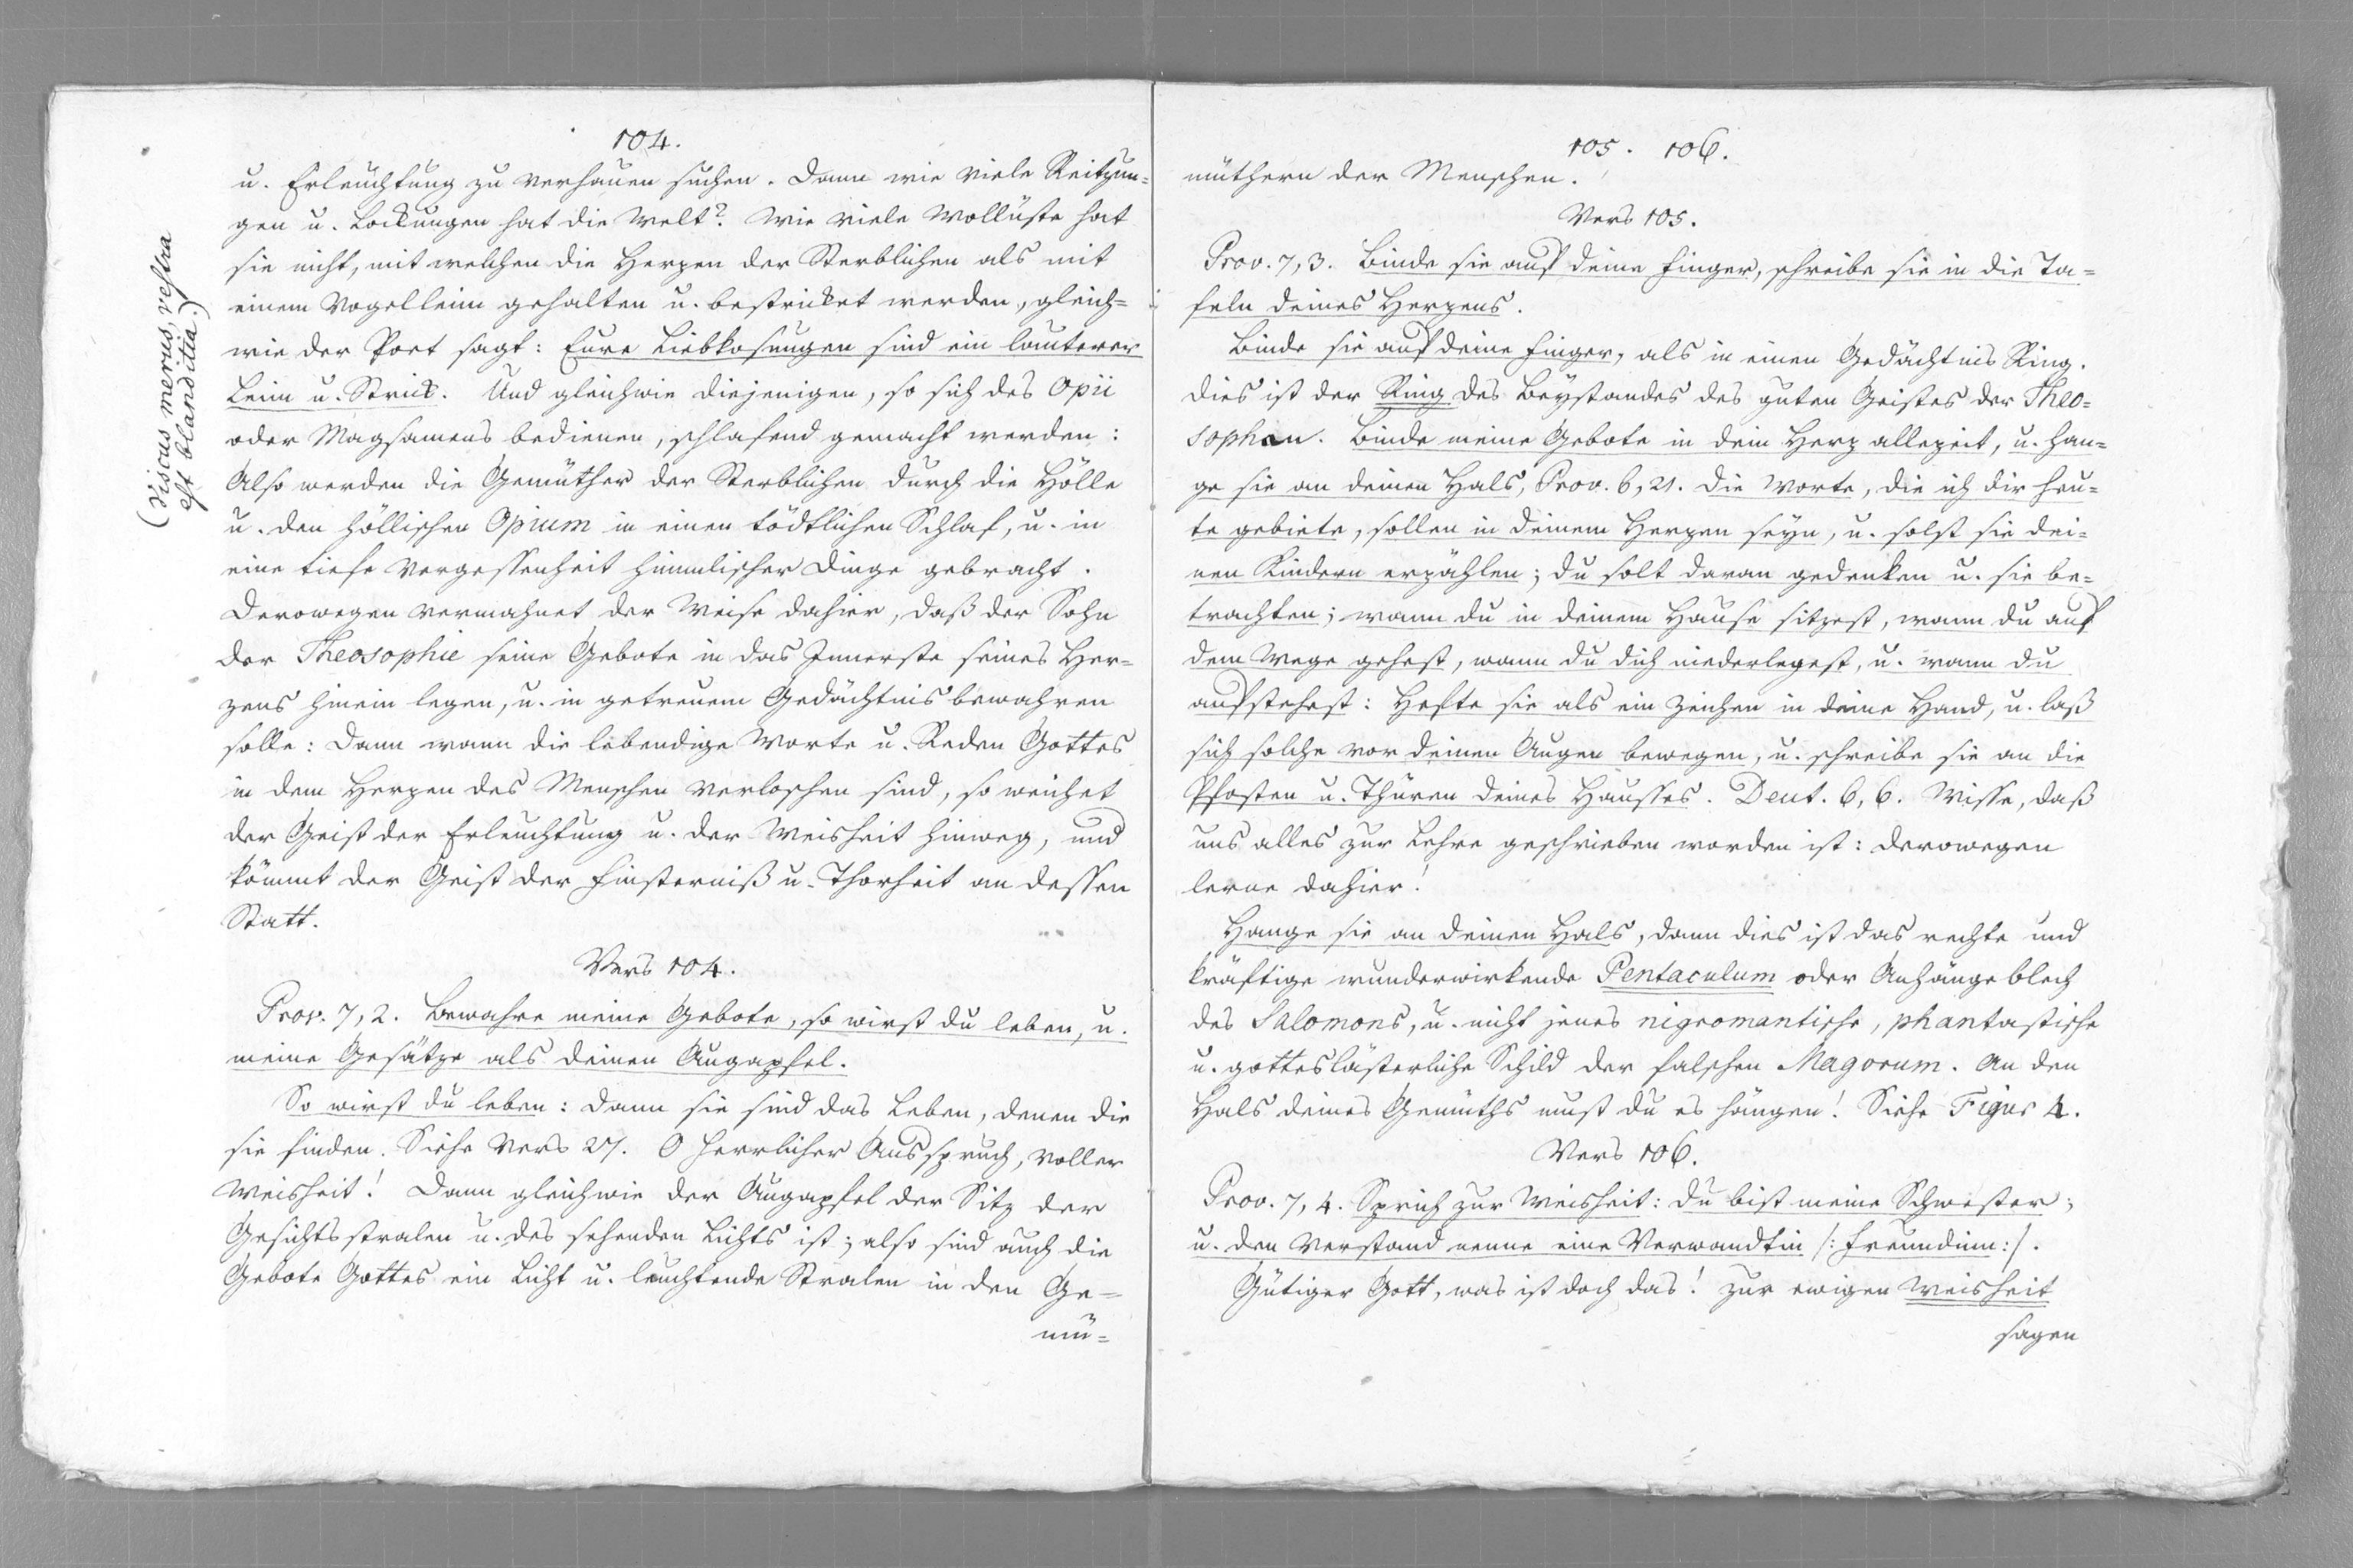 104.
u. Erleuchtung zu verhauen suchen. Dann wie viele Reitzun=
gen u. Lockungen hat die Welt? Wie viele Wollüste hat
sie nicht, mit welchen die Herzen der Sterblichen als mit
einem Vogelleim gehalten u. bestricket werden, gleich=
wie der Poet sagt: Eure Liebkosungen sind ein lauterer
Leim u. Strick. Und gleichwie diejenigen, so sich des Opii
oder Magsamens bedienen, schlafend gemacht werden:
Also werden die Gemüther der Sterblichen durch die Hölle
u. den höllischen Opium in einen tödtlichen Schlaf, u. in
eine tiefe Vergessenheit himmlischer Dinge gebracht.
Derowegen vermahnet der Weise dahier, daß der Sohn
der Theosophie seine Gebote in das Innerste seines Her=
zens hinein legen, u. in getreuem Gedächtnis bewahren
solle: Dann wann die lebendige Worte u. Reden Gottes
in dem Herzen des Menschen verloschen sind, so weichet
der Geist der Erleuchtung u. der Weisheit hinweg, und
kömmt der Geist der Finsterniß u. Thorheit an dessen
Statt.
(Viscus merus, vestra
est blanditia.)
Vers 104.
Prov. 7, 2. Bewahre meine Gebote, so wirst du leben, u.
meine Gesätze als deinen Augapfel.
So wirst du leben: dann sie sind das Leben, denen die
sie finden. Siehe Vers 27. O herrlicher Ausspruch, voller
Weisheit! Dann gleichwie der Augapfel der Sitz der
Gesichtsstralen u. des sehenden Lichts ist; also sind auch die
Gebote Gottes ein Licht u. leuchtende Stralen in den Ge=
mü=
105. 106.
müthern der Menschen.
Vers 105.
Prov. 7, 3. Binde sie auf deine Finger, schreibe sie in die Ta=
feln deines Herzens.
Binde sie auf deine Finger, als in einen Gedächtnis Ring.
dies ist der Ring des Beystandes des guten Geistes der Theo=
sophen. Binde meine Gebote in dein Herz allezeit, u. han=
ge sie an deinen Hals, Prov. 6, 21. Die Worte, die ich dir heu=
te gebiete, sollen in deinem Herzen seyn, u. solst sie dei=
nen Kindern erzählen; du solt daran gedenken u. sie be=
trachten; wann du in deinem Hause sitzest, wann du auf
dem Wege gehest, wann du dich niederlegest, u. wann du
aufstehest: Hefte sie als ein Zeichen in deine Hand, u. laß
sich solche vor deinen Augen bewegen, u. schreibe sie an die
Pfosten u. Thüren deines Hausses. Deut. 6, 6. Wisse, daß
uns alles zur Lehre geschrieben worden ist: derowegen
lerne dahier!
Hange sie an deinen Hals, dann dies ist das rechte und
kräftige wunderwirkende Pentaculum oder Anhängeblech
des Salomons, u. nicht jenes nigromantische, phantastische
u. gotteslästerliche Schild der falschen Magorum. An den
Hals deines Gemüths must du es hängen! Siehe Figur 4.
Vers 106.
Prov. 7, 4. Sprich zur Weisheit: du bist meine Schwester;
u. den Verstand nenne eine Verwandtin /: Freundinn:/.
Gütiger Gott, was ist doch das! zur ewigen Weisheit
sagen